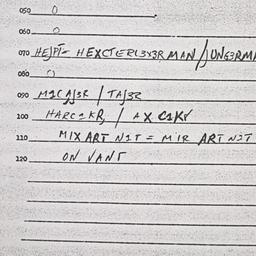 050 0
060 0
070 HEJPT- HEXCTERL3Y3R MAN / JUNG3RMA
080 0
090 M1CAJ3R / TAJ3R
100 HARC1KR / AX C1KY
110 MIXART N1T = MIR ART N1T
120 ON VANT